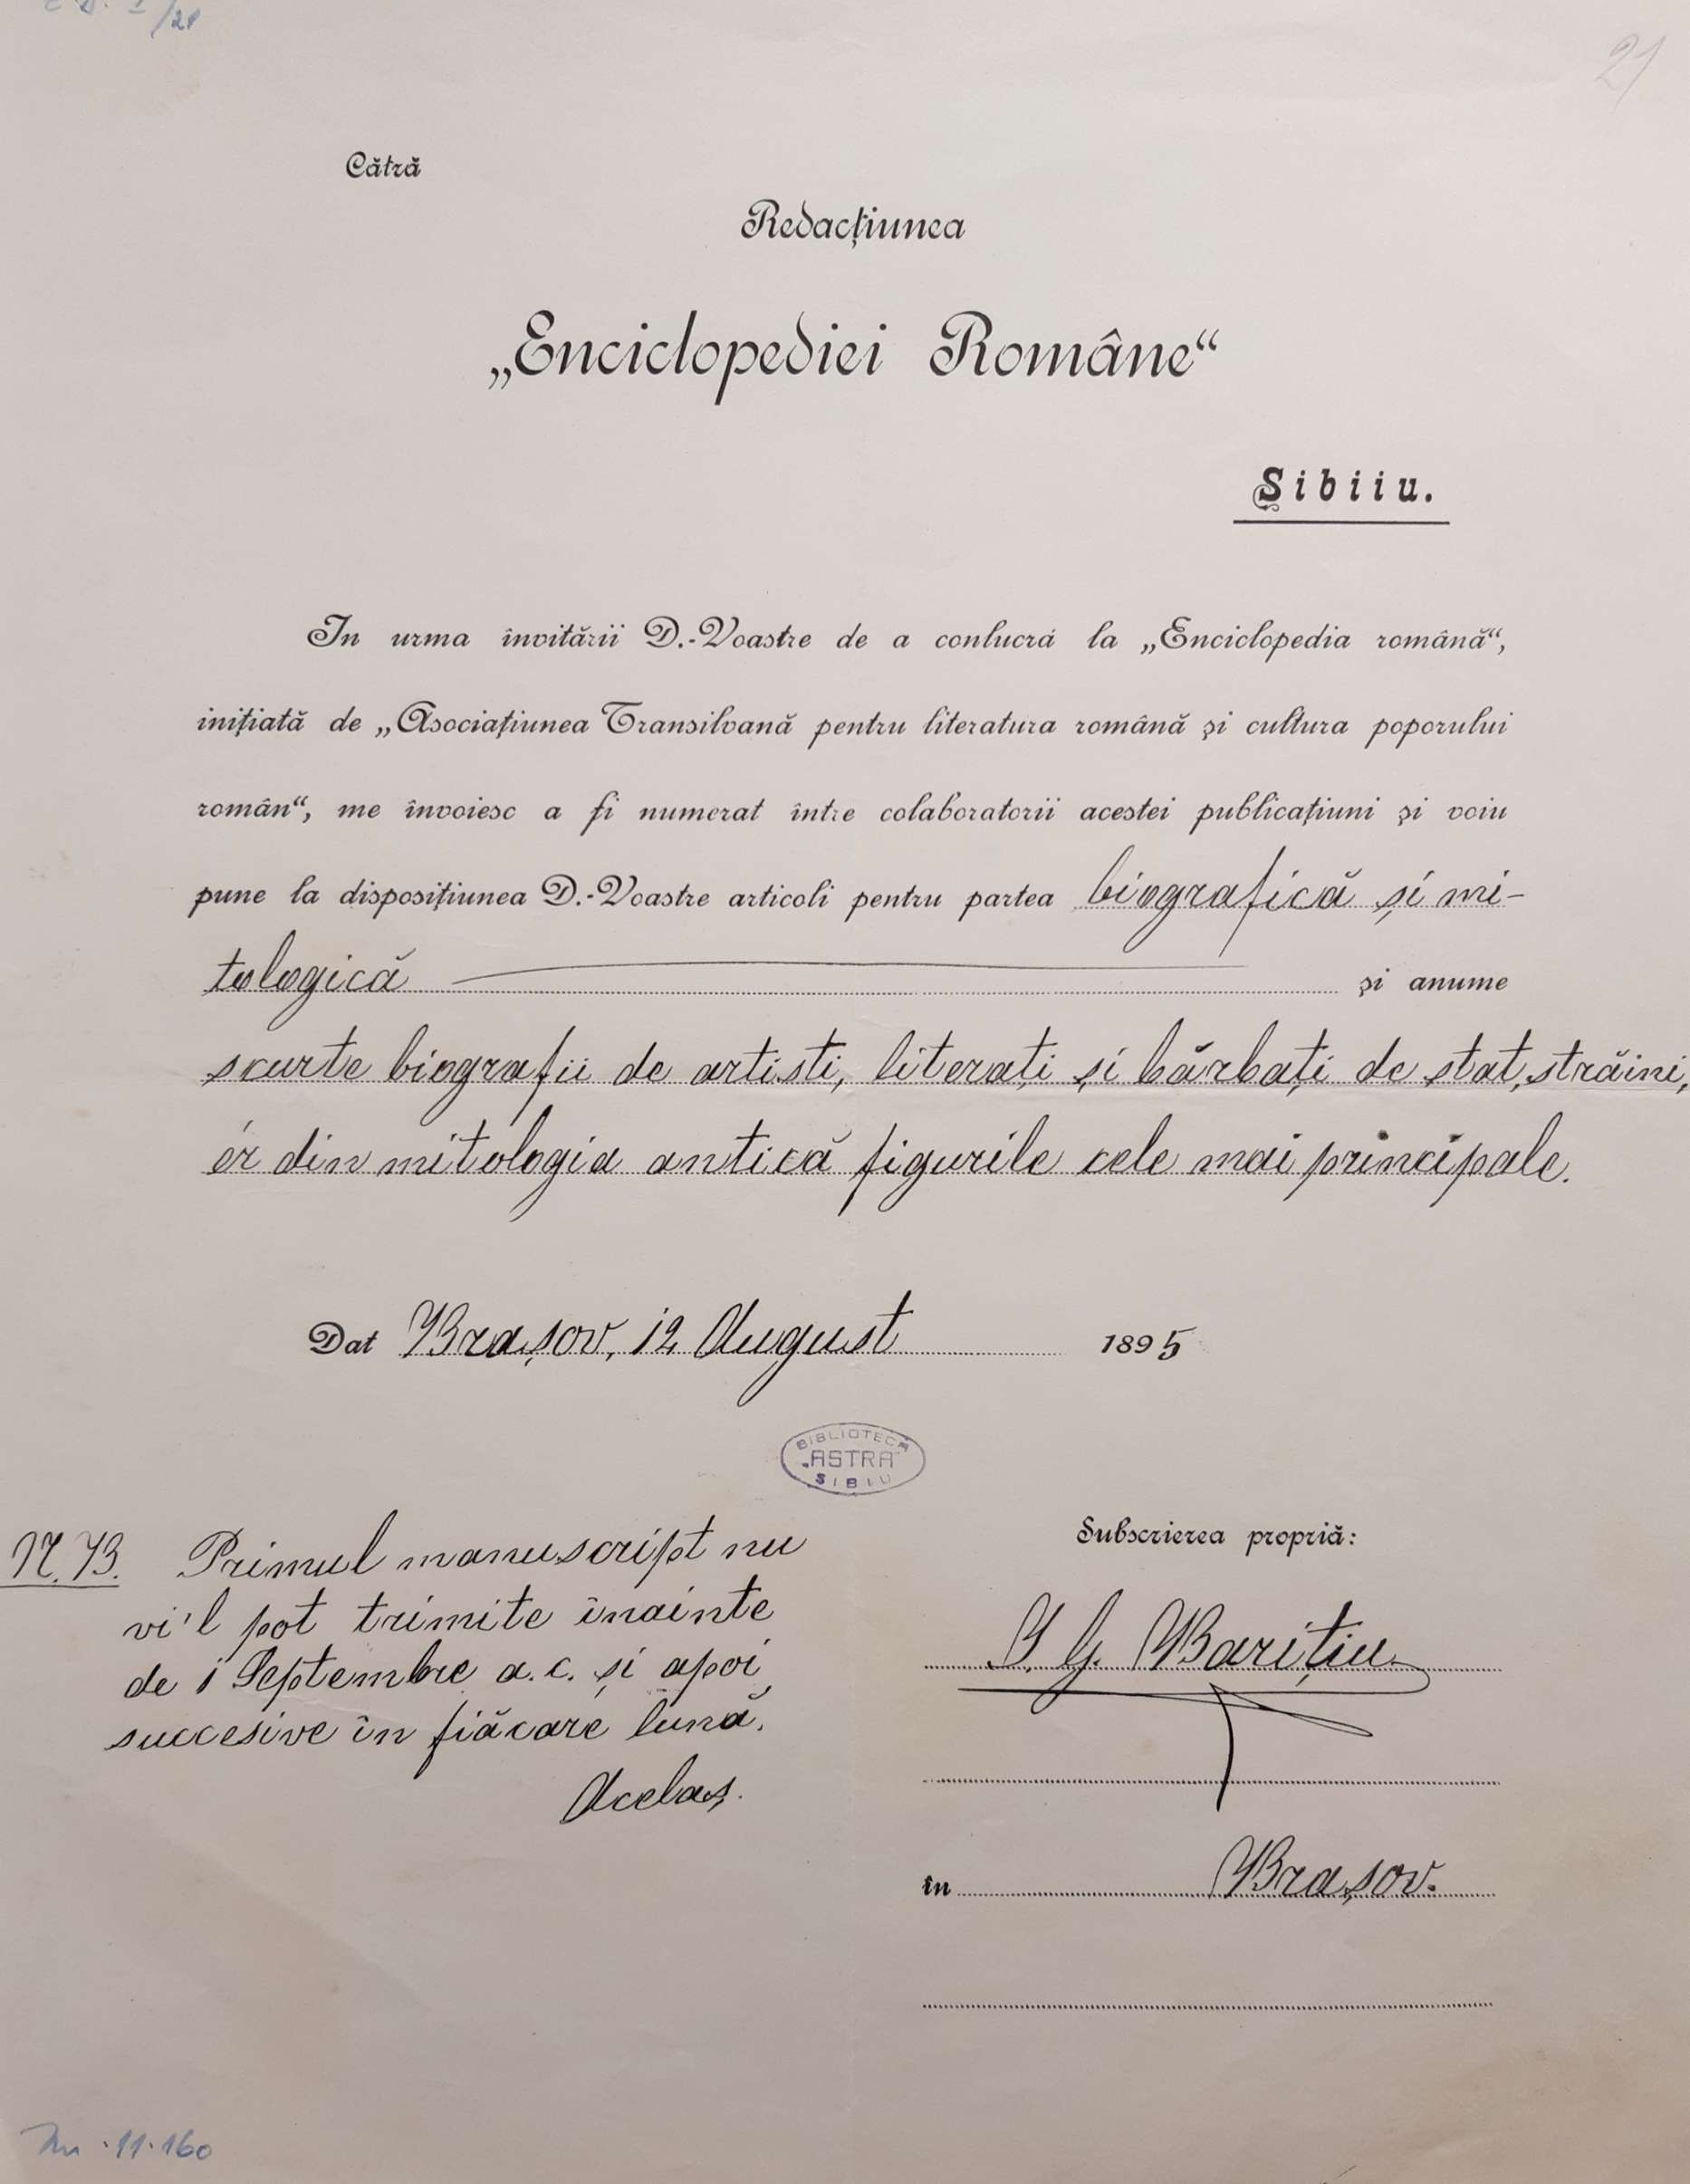 21
Cătră
Redacțiunea
„Enciclopediei Române“
Șibiiu.
In urma învitării D.-Voastre de a conlucrá la „Enciclopedia română“,
inițiată de „Asociațiunea Transilvană pentru literatura română și cultura poporului
român“, me învoiesc a fi numerat între colaboratorii acestei publicațiuni și voiu
pune la disposițiunea D.-Voastre articoli pentru partea biografică și mi-
tologică și anume
scurte biografii de artisti, literați și bărbați de stat, străini,
ér din mitologia antică figurile cele mai principale.
Dat Brașov, 12 August 1895
BIBLIOTECA
„ASTRA“
SIBIU
N.B. Primul manuscript nu
vi'l pot trimite înainte
de 1 Septembre a.c. și apoi
succesive în fiăcare lună.
Acelaș.
Subscrierea propriă:
I. G. Barițiu
în Brașov.
11.160